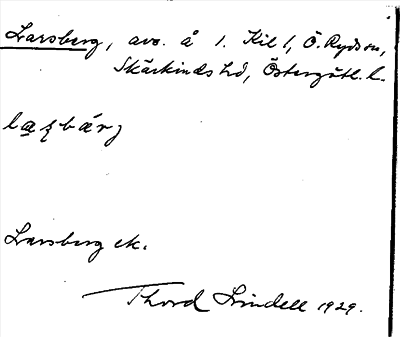 Larsberg, avs. å 1. Kil 1, Ö. Ryds sn,
Skärkinds hd, Östergötl. l.
Larsberg ek.
Thord Lindell 1929.